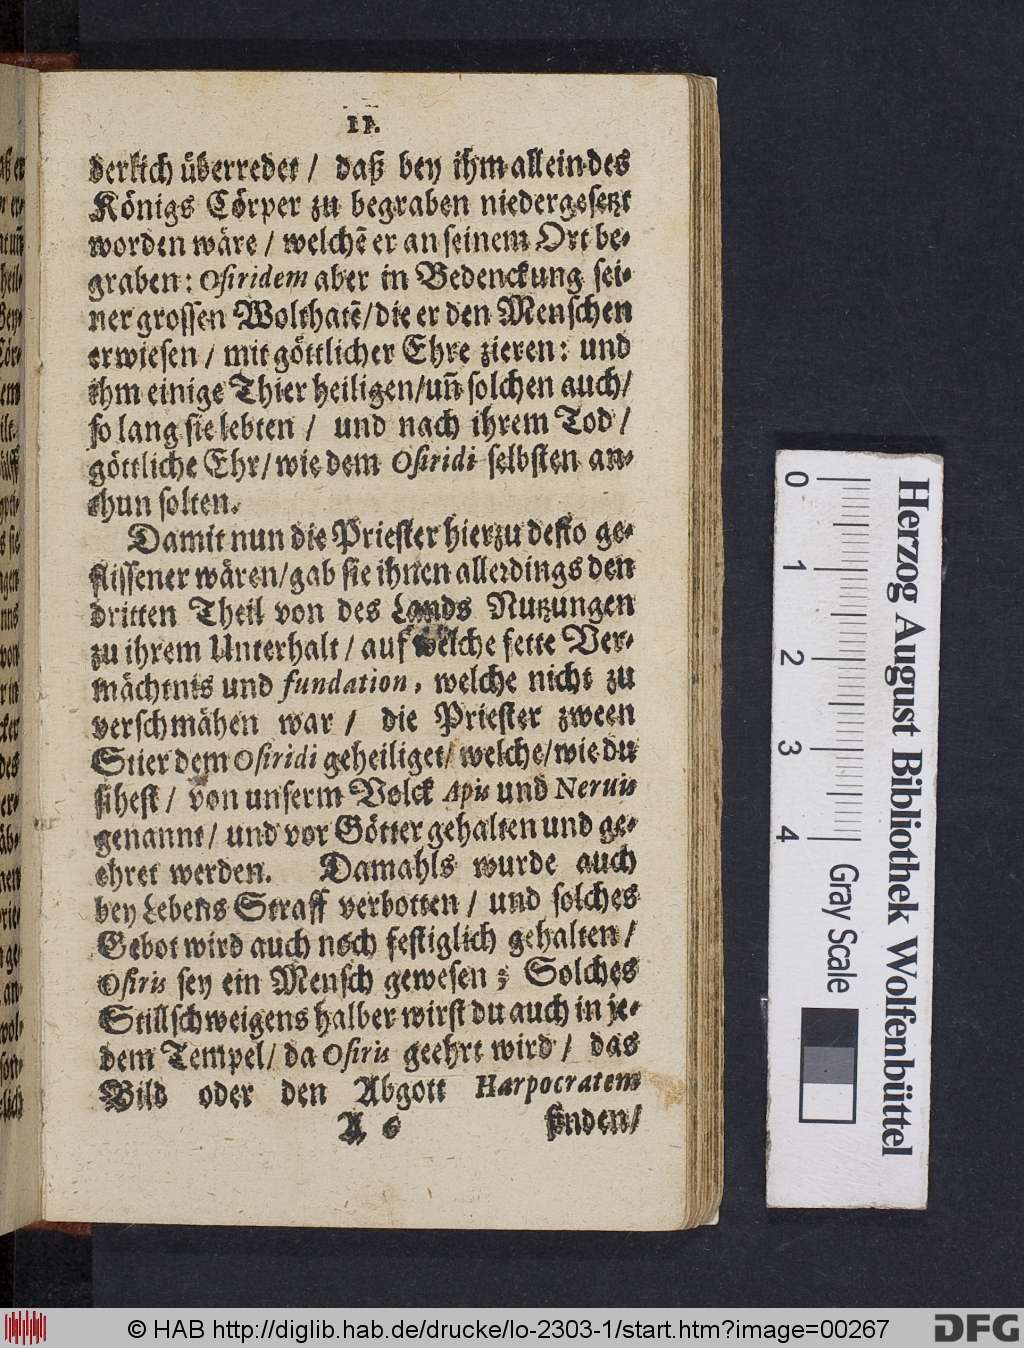 11.
derlich überredet / daß bey ihm allein des
Königs Cörper zu begraben niedergesetzt
worden wäre / welchē er an seinem Ort be-
graben: Osiridem aber in Bedenckung sei-
ner grossen Wolthatē/die er den Menschen
erwiesen / mit göttlicher Ehre zieren: und
ihm einige Thier heiligen/uñ solchen auch/
so lang sie lebten / und nach ihrem Tod /
göttliche Ehr/wie dem Osiridi selbsten an-
thun solten.
Damit nun die Priester hierzu desto ge-
flissener wären/gab sie ihnen allerdings den
dritten Theil von des Lands Nutzungen
zu ihrem Unterhalt / auf welche fette Ver-
mächtnis und fundation, welche nicht zu
verschmähen war / die Priester zween
Stier dem Osiridi geheiliget/ welche/wie du
sihest / von unserm Volck Apis und Neruis
genannt/ und vor Götter gehalten und ge-
ehret werden. Damahls wurde auch
bey Lebens Straff verbotten / und solches
Gebot wird auch noch festiglich gehalten /
Osiris sey ein Mensch gewesen; Solches
Stillschweigens halber wirst du auch in je-
dem Tempel/ da Osiris geehrt wird / das
Bild oder den Abgott Harpocratem
A 6 finden/
0 1 2 3 4
Herzog August Bibliothek Wolfenbüttel
Gray Scale
© HAB http://diglib.hab.de/drucke/lo-2303-1/start.htm?image=00267
DFG